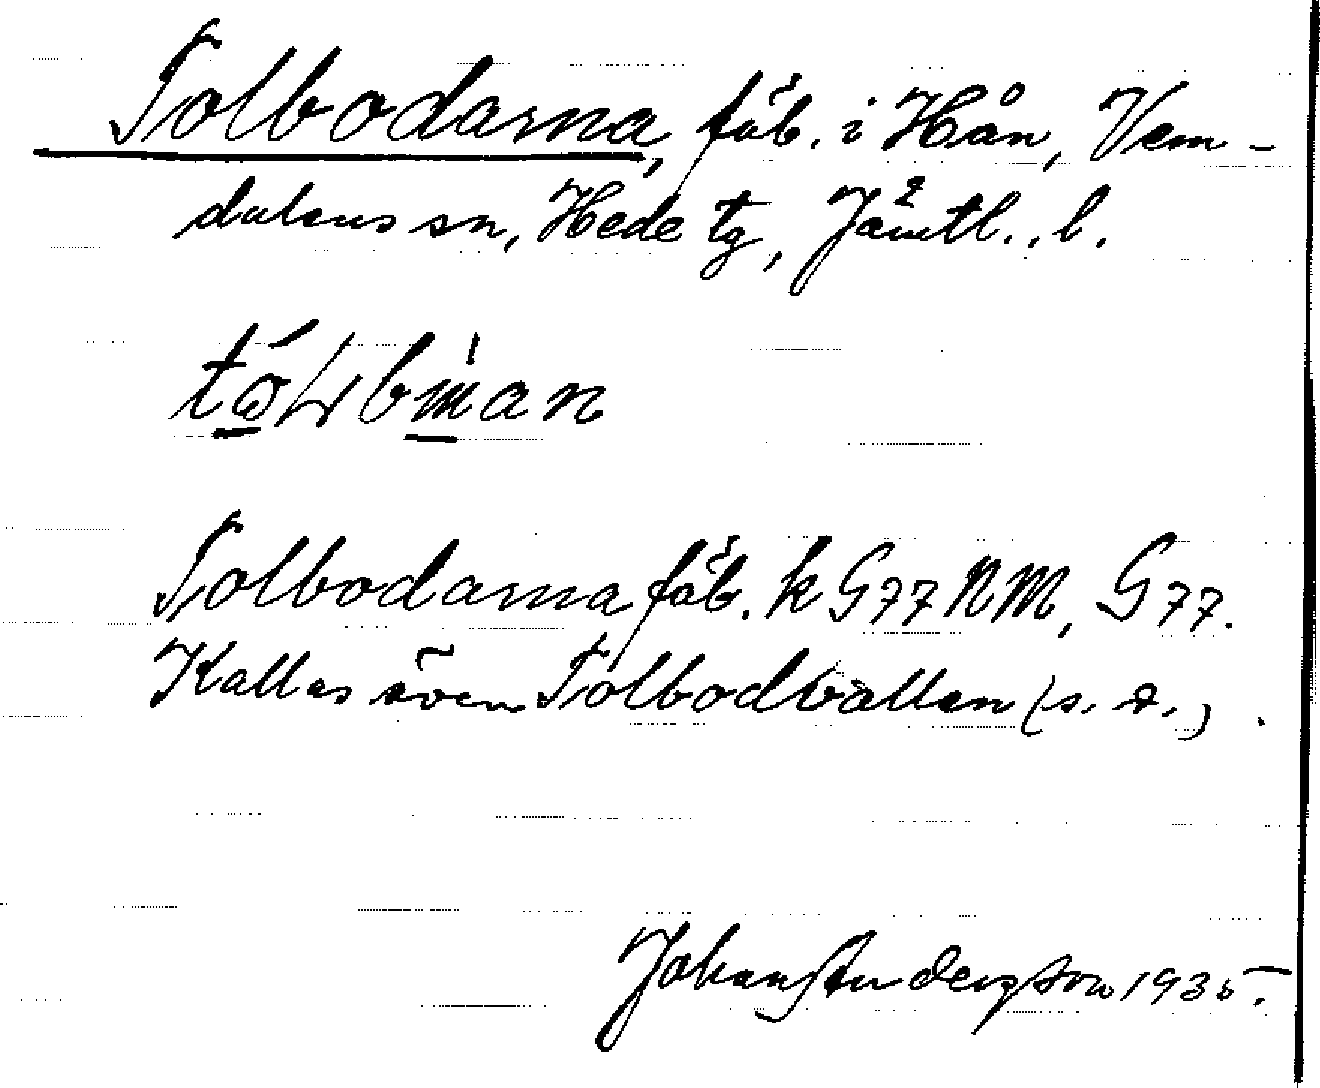 Tolbodarna, fäb. i Hån, Vem-
dalens sn, Hede tg, Jämtl. l.
Tolbodarna fäb. k G77 NM, G77.
Kallas även Tolbodvallen (s. d.)
Johan Anderson 1935.